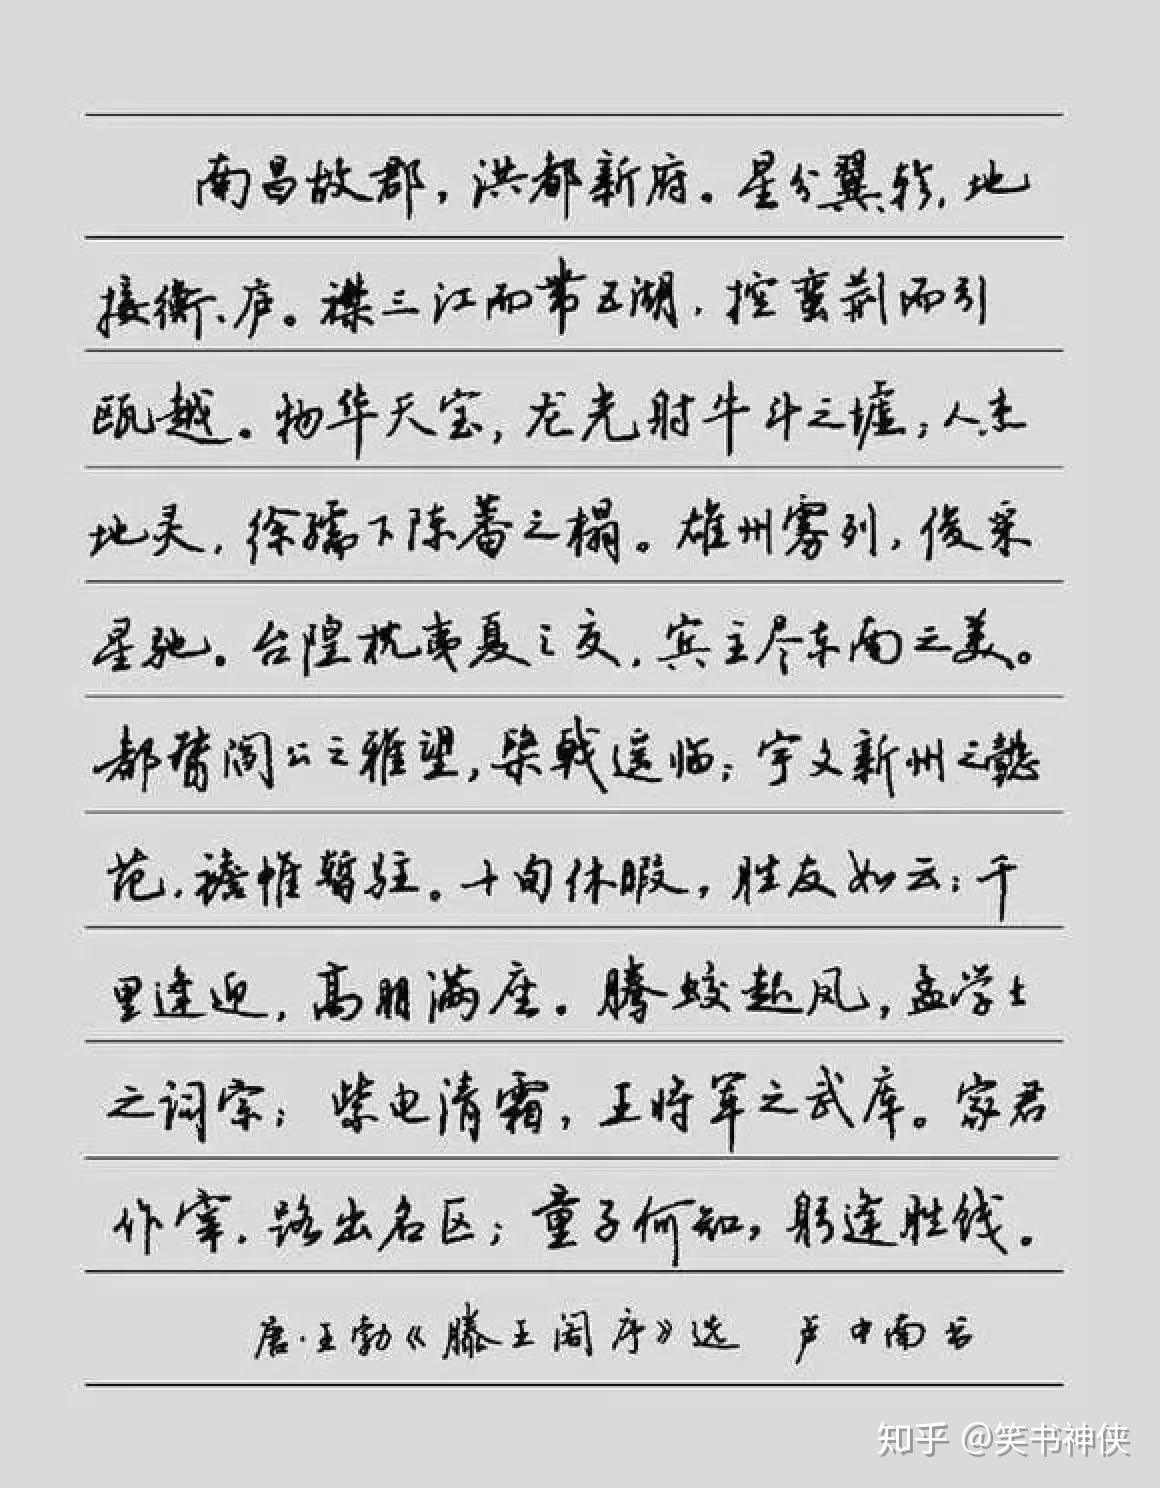 南昌故郡，洪都新府。星分翼轸，地
接衡、庐。襟三江而带五湖，控蛮荆而引
瓯越。物华天宝，龙光射牛斗之墟；人杰
地灵，徐孺下陈蕃之榻。雄州雾列，俊采
星驰。台隍枕夷夏之交，宾主尽东南之美。
都督阎公之雅望，棨戟遥临；宇文新州之懿
范，襜帷暂驻。十旬休暇，胜友如云；千
里逢迎，高朋满座。腾蛟起凤，孟学士
之词宗；紫电清霜，王将军之武库。家君
作宰，路出名区；童子何知，躬逢胜饯。
唐·王勃《滕王阁序》选 卢中南书
知乎 @笑书神侠